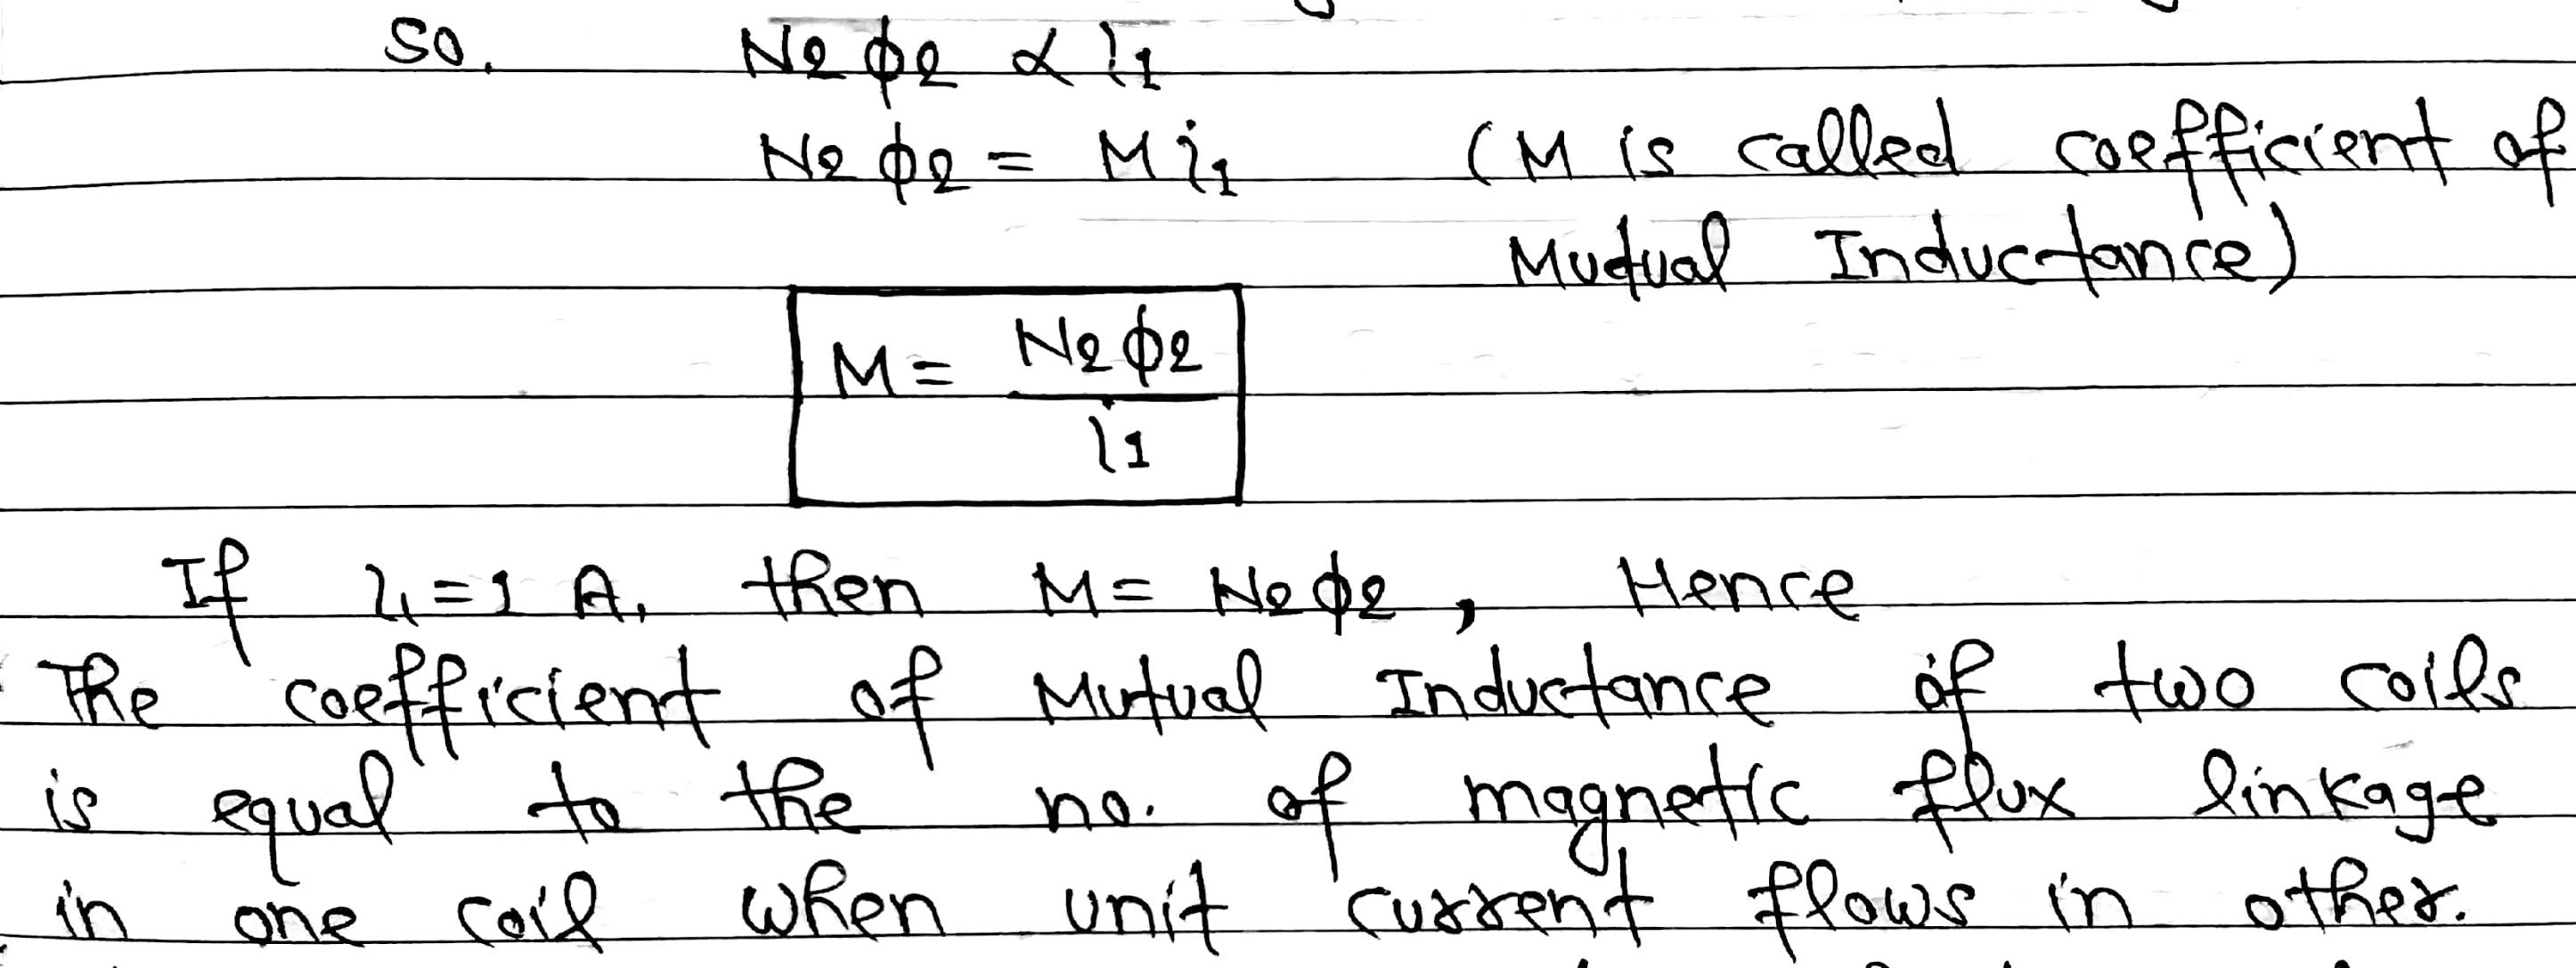 So, N₂ φ₂ ∝ i₁
N₂ φ₂ = M i₁ (M is called coefficient of
Mutual Inductance)
M = N₂ φ₂
i₁
If i₁ = 1 A, then M = N₂ φ₂, Hence
The coefficient of Mutual Inductance of two coils
is equal to the no. of magnetic flux linkage
in one coil when unit current flows in other.